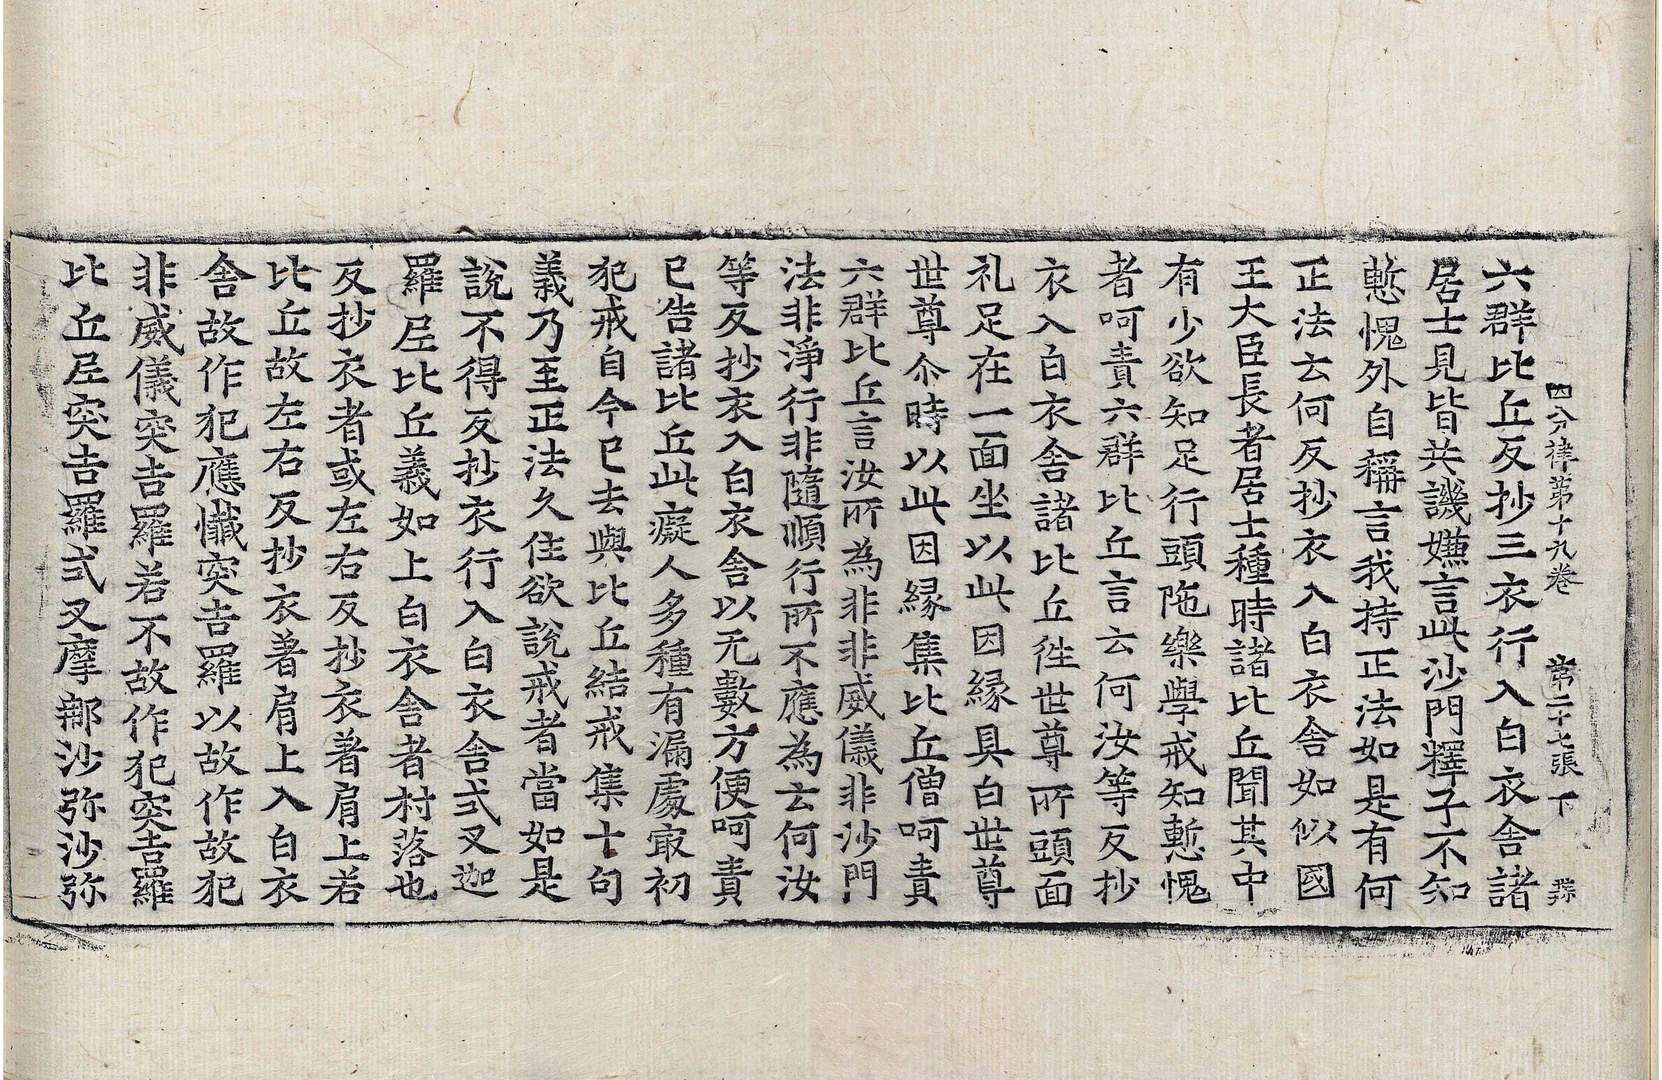 四分律第十九卷 第二十七張 下
六群比丘反抄三衣行入白衣舍諸
居士見皆共譏嫌言此沙門釋子不知
慙愧外自稱言我持正法如是有何
正法云何反抄衣入白衣舍如似國
王大臣長者居士種時諸比丘聞其中
有少欲知足行頭陁樂學戒知慙愧
者呵責六群比丘言云何汝等反抄
衣入白衣舍諸比丘徃世尊所頭面
礼足在一面坐以此因緣具白世尊
世尊尒時以此因緣集比丘僧呵責
六群比丘言汝所為非非威儀非沙門
法非淨行非隨順行所不應為云何汝
等反抄衣入白衣舍以无數方便呵責
已告諸比丘此癡人多種有漏處㝡初
犯戒自今已去與比丘結戒集十句
義乃至正法久住欲說戒者當如是
說不得反抄衣行入白衣舍式叉迦
羅尼比丘義如上白衣舍者村落也
反抄衣者或左右反抄衣著肩上若
比丘故左右反抄衣著肩上入白衣
舍故作犯應懺突吉羅以故作故犯
非威儀突吉羅若不故作犯突吉羅
比丘尼突吉羅式叉摩那沙弥沙弥